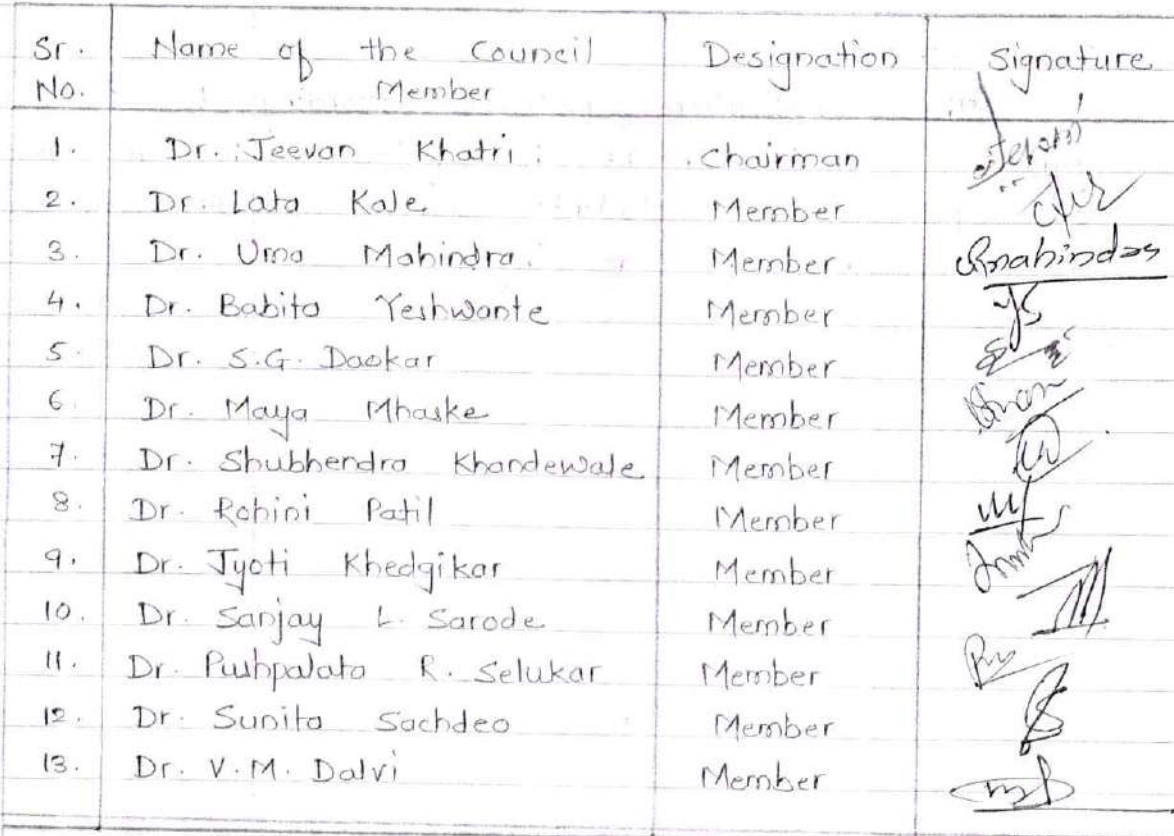 Sr. No. Name of the Council Member Designation Signature
1. Dr. Jeevan Khatri Chairman
2. Dr. Lata Kale Member
3. Dr. Uma Mahindra Member
4. Dr. Babita Yeshwante Member
5. Dr. S.G. Daokar Member
6. Dr. Maya Mhaske Member
7. Dr. Shubhendra Khandewale Member
8. Dr. Rohini Patil Member
9. Dr. Jyoti Khedgikar Member
10. Dr. Sanjay L. Sarode Member
11. Dr. Pushpalata R. Selukar Member
12. Dr. Sunita Sachdeo Member
13. Dr. V.M. Dalvi Member